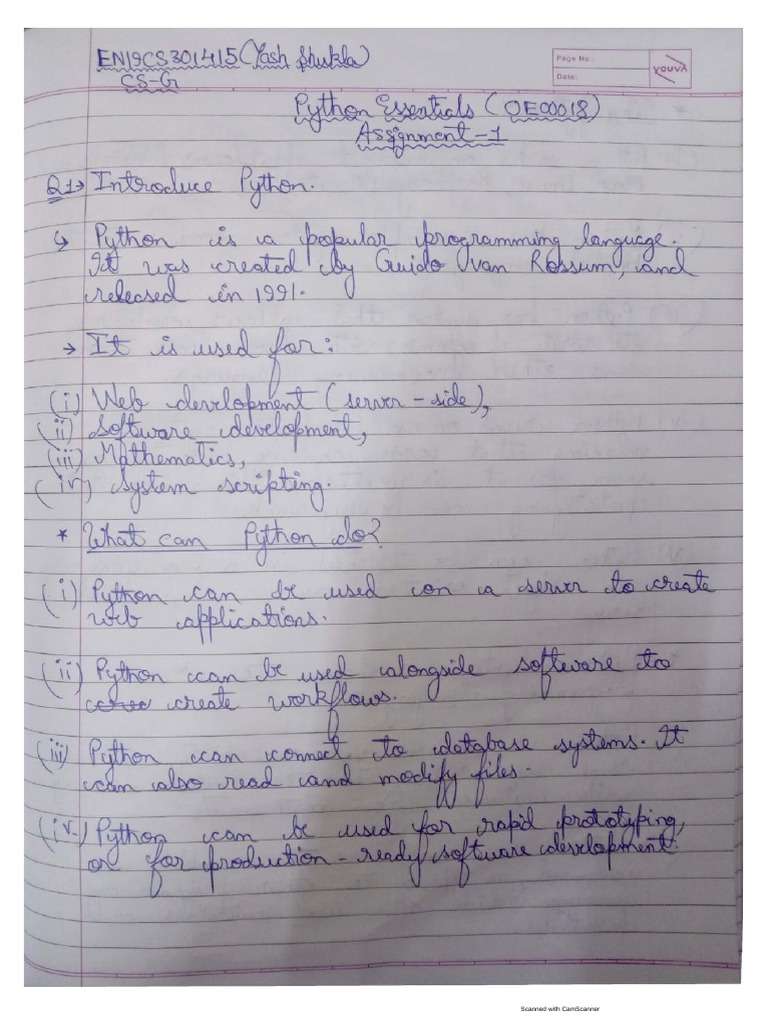 EN19CS301415(Yash Shukla)
CS-G
Page No.:
Date:
YOUVA
Python Essentials (OE00018)
Assignment-1
Q1→ Introduce Python.
↳ Python is a popular programming language.
It was created by Guido van Rossum, and
released in 1991.
→ It is used for:
(i) Web development (server-side),
(ii) Software development,
(iii) Mathematics,
(iv) System scripting.
* What can Python do?
(i) Python can be used on a server to create
web applications.
(ii) Python can be used alongside software to
create workflows.
(iii) Python can connect to database systems. It
can also read and modify files.
(iv) Python can be used for rapid prototyping,
or for production-ready software development.
Scanned with CamScanner